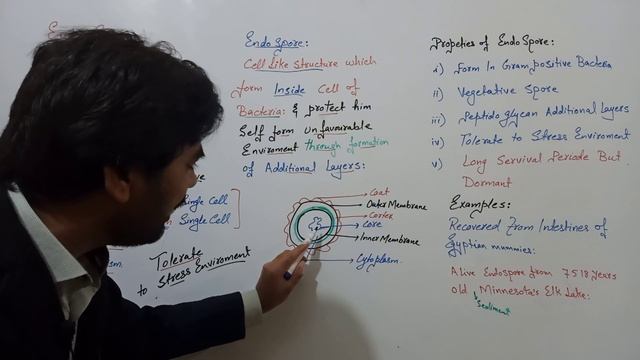 Endo Spore:
Cell Like Structure which
form Inside Cell of
Bacteria: & protect him
Self form unfavourable
Enviroment through formation
of Additional Layers:
Single Cell
Single Cell
Tolerate
to Stress Enviroment
Coat
Outer Membrane
Cortex
Core
Inner Membrane
Cytoplasm
Propeties of Endo Spore:
i) Form In Gram positive Bacteria
ii) Vegetative Spore
iii) Peptidoglycan Additional Layers
iv) Tolerate to Stress Enviroment
v) Long Servival Periode But
Dormant
Examples:
Recovered From Intestines of
Egyptian mummies:
Alive Endospore from 7518 Years
old Minnesota's Elk Lake:
Sediment